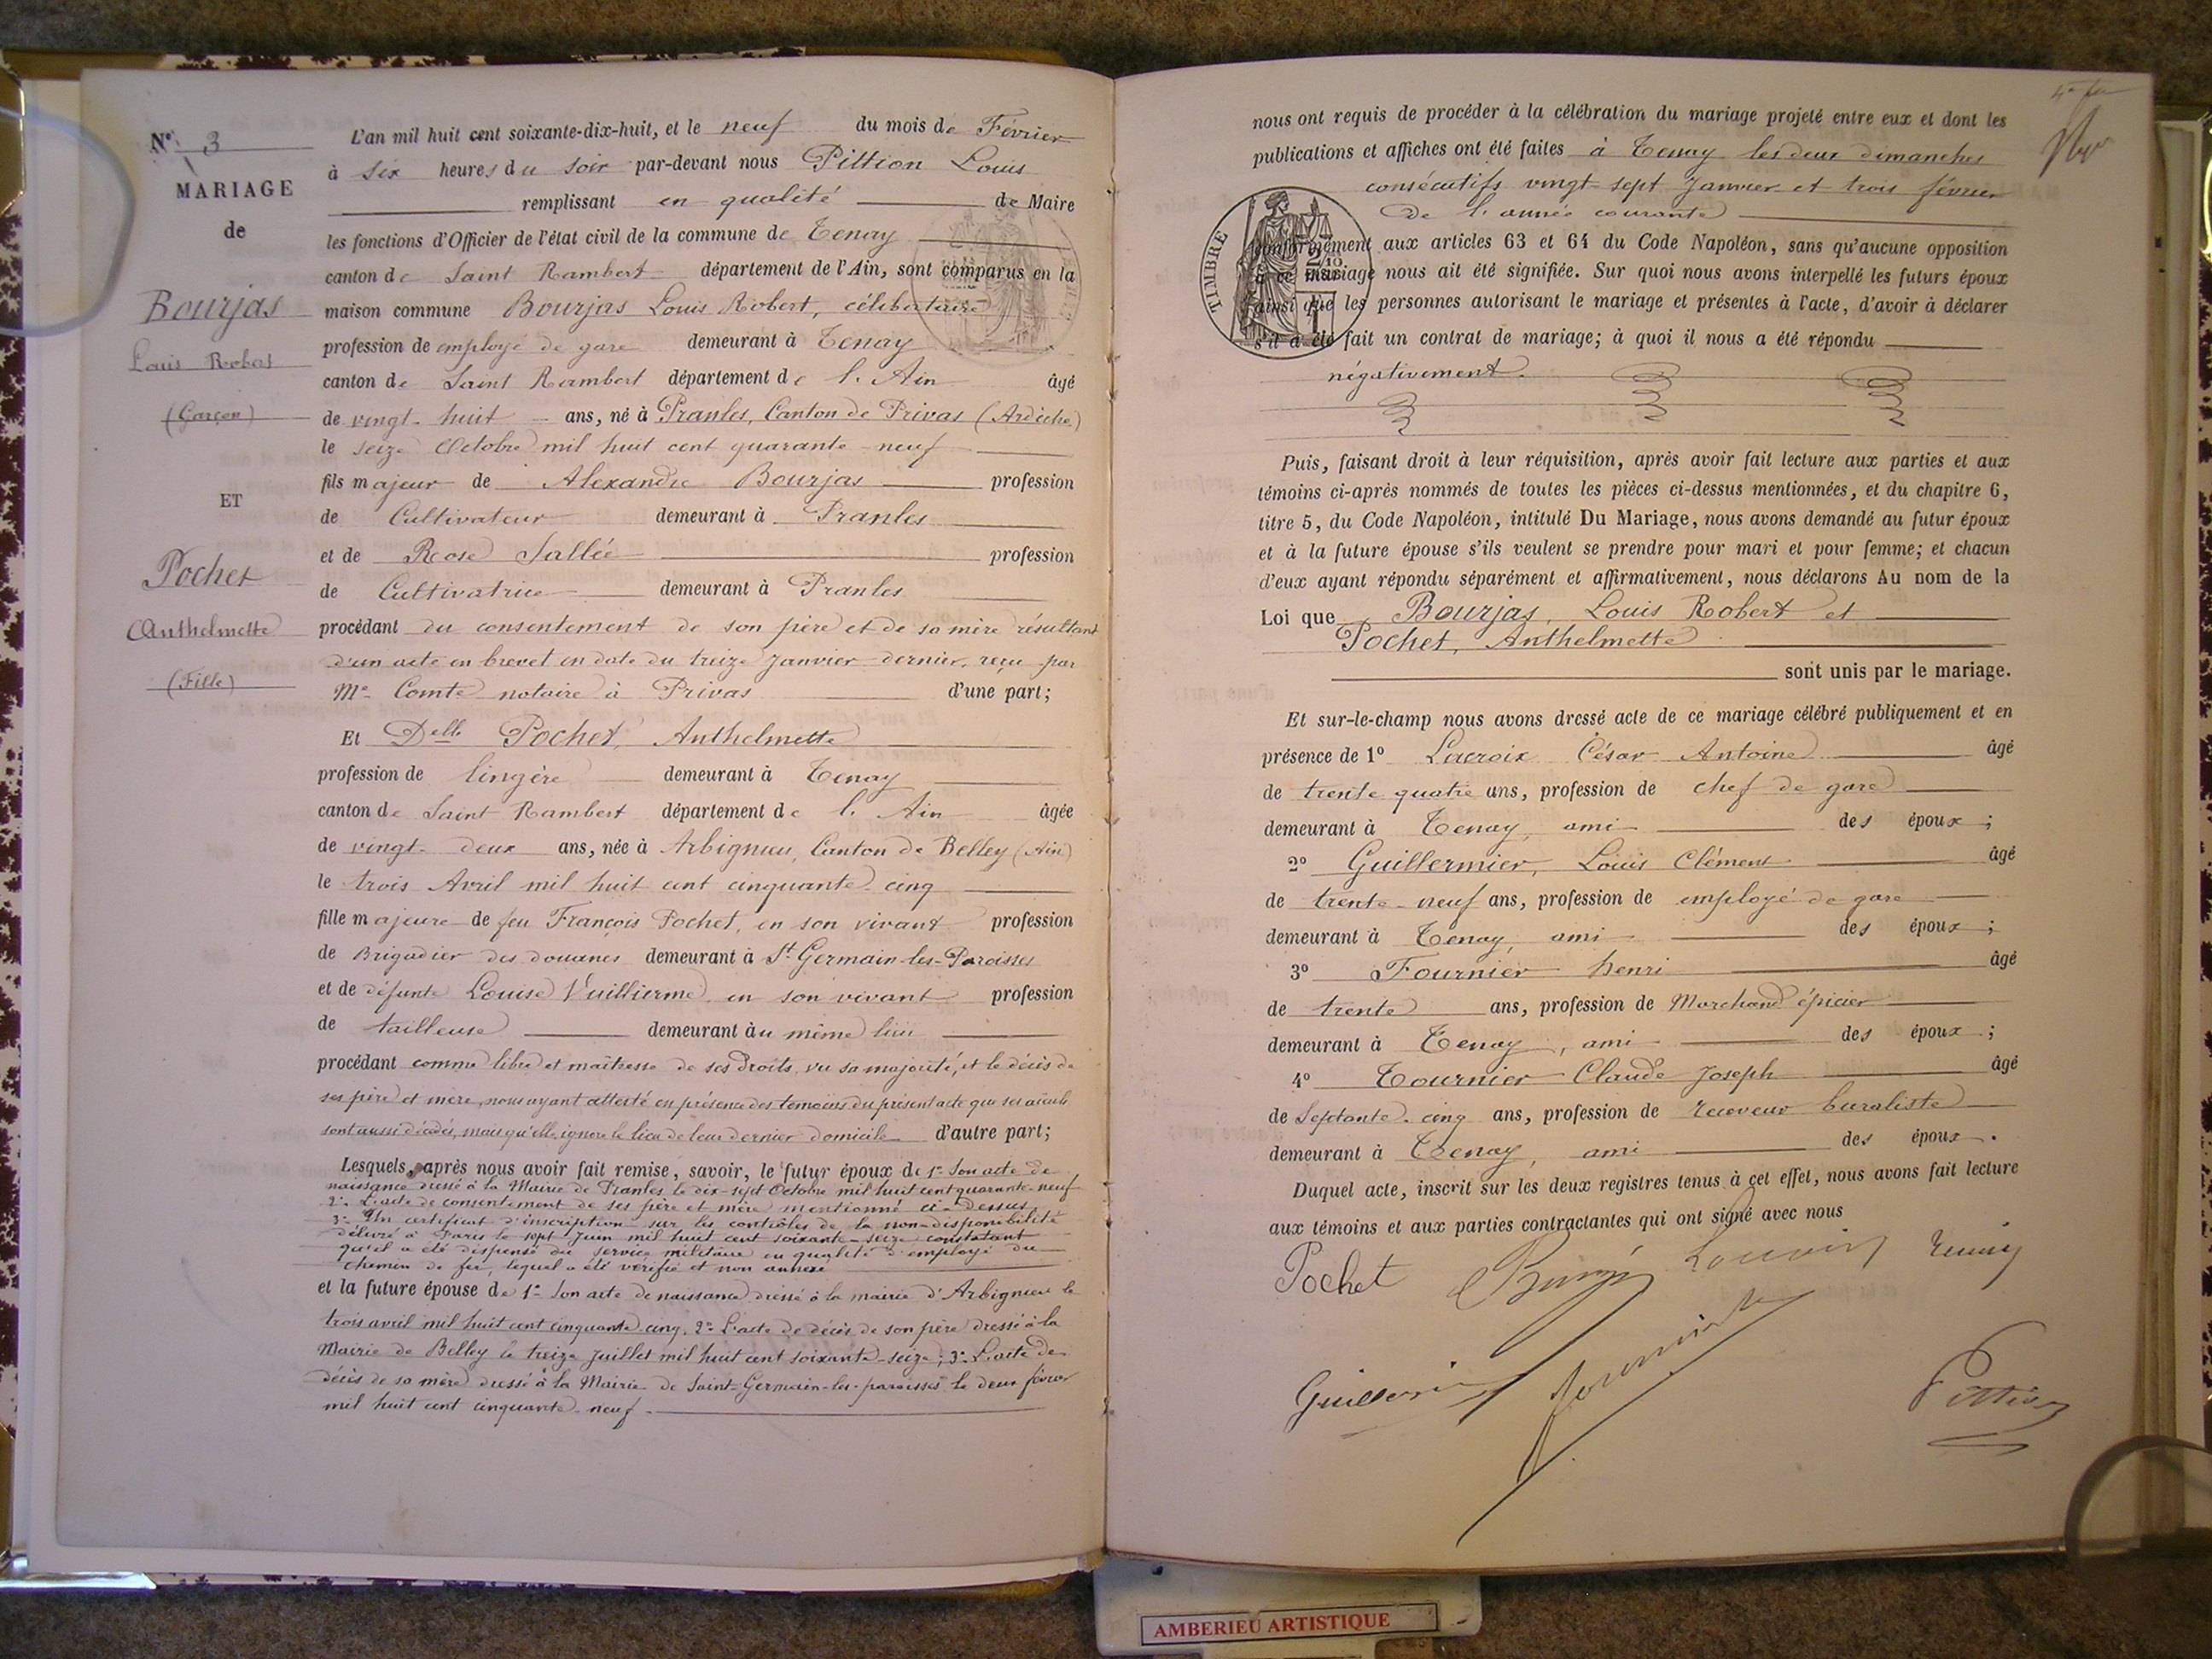 N° 3
MARIAGE
de
Bourjas
Louis Robert
(Garçon)
ET
Pochet
Anthelmette
(Fille)
L'an mil huit cent soixante-dix-huit, et le neuf du mois de Février
à six heures du soir par-devant nous Pittion Louis
remplissant en qualité de Maire
les fonctions d'Officier de l'état civil de la commune de Tenay
canton de Saint Rambert département de l'Ain, sont comparus en la
maison commune Bourjas Louis Robert, célibataire
profession de employé de gare demeurant à Tenay
canton de Saint Rambert département de l'Ain âgé
de vingt-huit ans, né à Pranles, Canton de Privas (Ardèche)
le seize Octobre mil huit cent quarante-neuf
fils majeur de Alexandre Bourjas profession
de Cultivateur demeurant à Pranles
et de Rose Sallée profession
de Cultivatrice demeurant à Pranles
procédant du consentement de son père et de sa mère résultant
d'un acte en brevet en date du treize Janvier dernier, reçu par
Me Comte notaire à Privas d'une part;
Et Delle Pochet, Anthelmette
profession de lingère demeurant à Tenay
canton de Saint Rambert département de l'Ain âgée
de vingt-deux ans, née à Arbignieu, Canton de Belley (Ain)
le trois Avril mil huit cent cinquante-cinq
fille majeure de feu François Pochet, en son vivant profession
de Brigadier des douanes demeurant à St Germain-les-Paroisses
et de défunte Louise Vuillierme en son vivant profession
de tailleuse demeurant au même lieu
procédant comme libre et maîtresse de ses droits, vu sa majorité, et le décès de
ses père et mère, nous ayant attesté en présence des témoins du présent acte que ses aïeuls
sont aussi décédés, mais qu'elle ignore le lieu de leur dernier domicile d'autre part;
Lesquels, après nous avoir fait remise, savoir, le futur époux de 1° Son acte de
naissance dressé à la Mairie de Pranles le dix-sept Octobre mil huit cent quarante-neuf
2° L'acte de consentement de ses père et mère mentionné ci-dessus
3° Un certificat d'inscription sur les contrôles de la non-disponibilité
délivré à Paris le sept Juin mil huit cent soixante-seize constatant
qu'il a été dispensé du service militaire en qualité d'employé du
chemin de fer, lequel a été vérifié et non annexé
et la future épouse de 1° Son acte de naissance dressé à la mairie d'Arbignieu le
trois avril mil huit cent cinquante-cinq. 2° L'acte de décès de son père dressé à la
Mairie de Belley le treize Juillet mil huit cent soixante-seize; 3° L'acte de
décès de sa mère dressé à la Mairie de Saint-Germain-les-paroisses le deux février
mil huit cent cinquante-neuf.
nous ont requis de procéder à la célébration du mariage projeté entre eux et dont les
publications et affiches ont été faites à Tenay les deux dimanches
consécutifs vingt-sept Janvier et trois février
de l'année courante
TIMBRE
conformément aux articles 63 et 64 du Code Napoléon, sans qu'aucune opposition
à ce mariage nous ait été signifiée. Sur quoi nous avons interpellé les futurs époux
ainsi que les personnes autorisant le mariage et présentes à l'acte, d'avoir à déclarer
s'il a été fait un contrat de mariage; à quoi il nous a été répondu
négativement.
Puis, faisant droit à leur réquisition, après avoir fait lecture aux parties et aux
témoins ci-après nommés de toutes les pièces ci-dessus mentionnées, et du chapitre 6,
titre 5, du Code Napoléon, intitulé Du Mariage, nous avons demandé au futur époux
et à la future épouse s'ils veulent se prendre pour mari et pour femme; et chacun
d'eux ayant répondu séparément et affirmativement, nous déclarons Au nom de la
Loi que Bourjas, Louis Robert et
Pochet, Anthelmette
sont unis par le mariage.
Et sur-le-champ nous avons dressé acte de ce mariage célébré publiquement et en
présence de 1° Lacroix César Antoine âgé
de trente quatre ans, profession de chef de gare
demeurant à Tenay, ami des époux;
2° Guillermier, Louis Clément âgé
de trente-neuf ans, profession de employé de gare
demeurant à Tenay, ami des époux;
3° Fournier henri âgé
de trente ans, profession de Marchand épicier
demeurant à Tenay, ami des époux;
4° Tournier Claude Joseph âgé
de Septante-cinq ans, profession de receveur buraliste
demeurant à Tenay, ami des époux.
Duquel acte, inscrit sur les deux registres tenus à cet effet, nous avons fait lecture
aux témoins et aux parties contractantes qui ont signé avec nous
Pochet
Pittion
AMBERIEU ARTISTIQUE